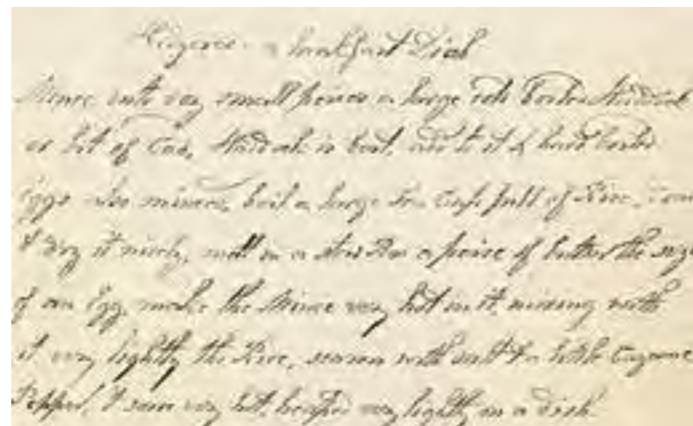 a breakfast Dish
Mince into very small peices a large cold boiled Haddock
or bit of Cod, Haddock is best, add to it hard boiled
Eggs also minced, boil a large Tea Cup full of Rice,
& dry it nicely, melt in a stew Pan a peice of butter the size
of an Egg, make the Mince very hot in it, mixing with
it very lightly the Rice, season with salt & a little Cayenne
Pepper, & serve very hot, heaped very lightly on a dish